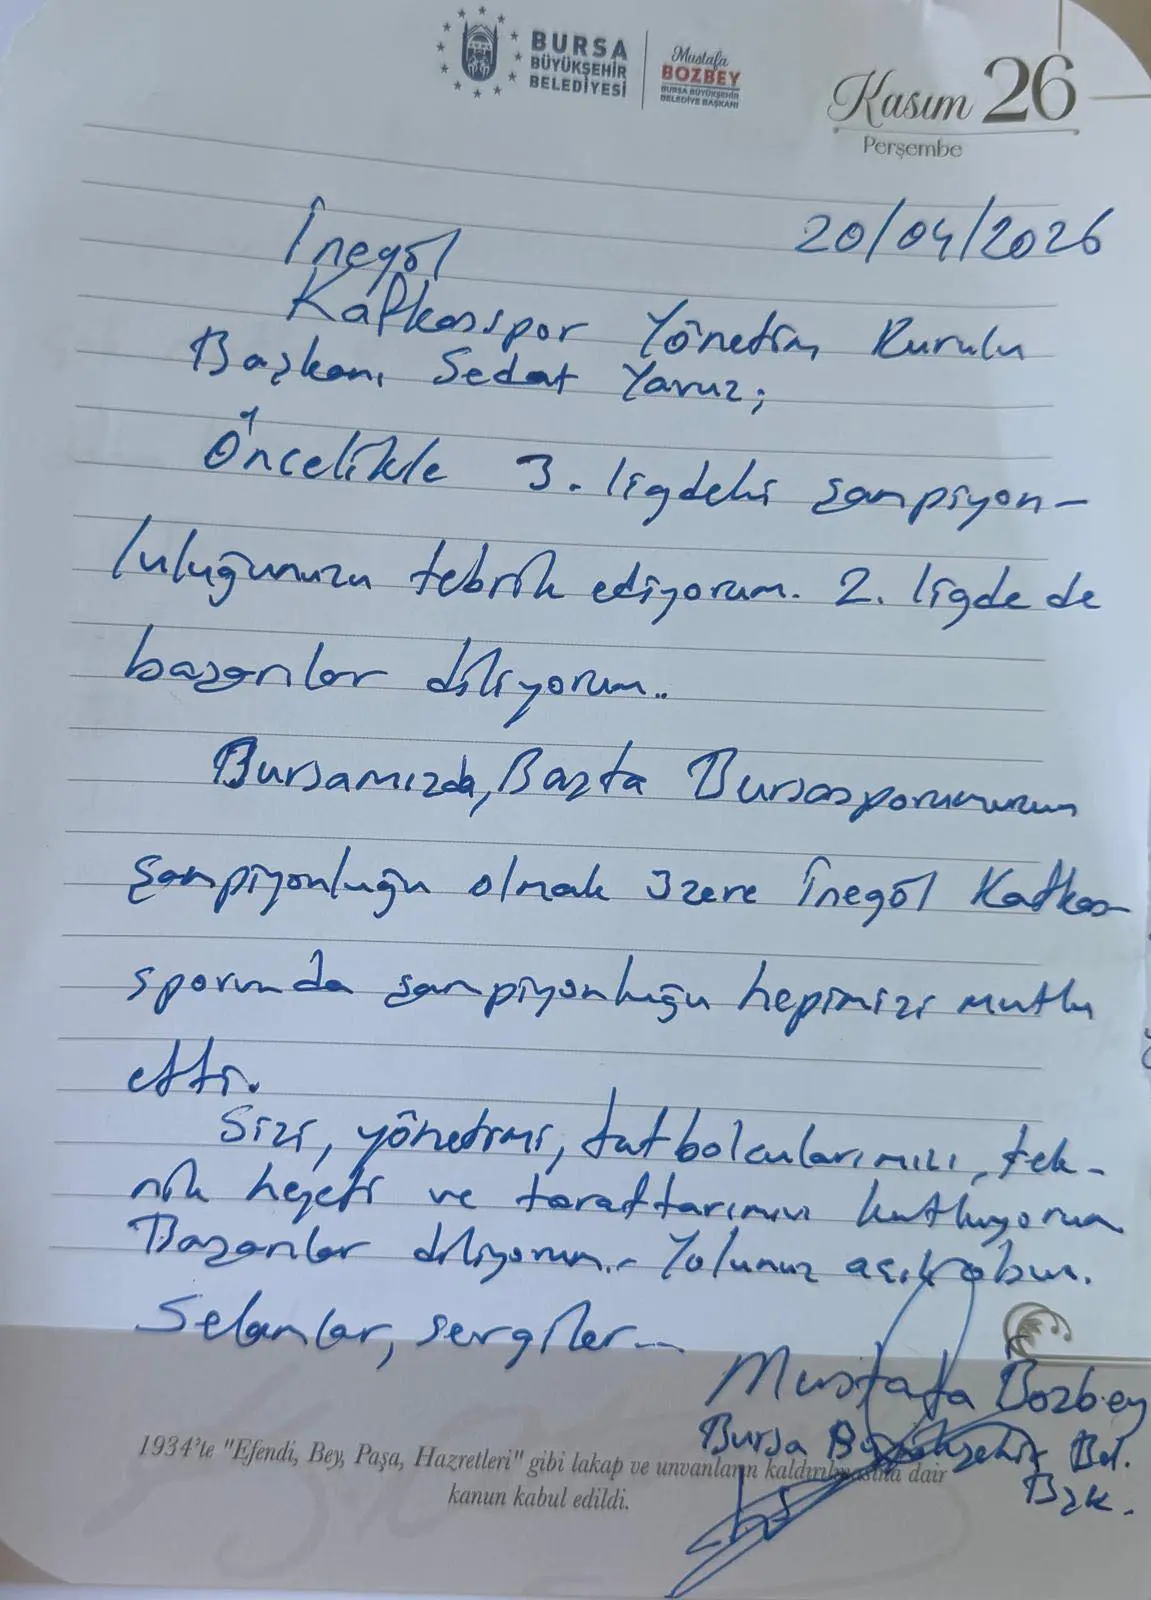 BURSA
BÜYÜKŞEHİR
BELEDİYESİ
Mustafa
BOZBEY
BURSA BÜYÜKŞEHİR
BELEDİYE BAŞKANI
Kasım 26
Perşembe
20/04/2026
İnegöl
Kafkasspor Yönetim Kurulu
Başkanı Sedat Yavuz;
Öncelikle 3. ligdeki şampiyon-
luluğunuzu tebrik ediyorum. 2. ligde de
başarılar diliyorum..
Bursamızda, Başta Bursasporumuzun
şampiyonluğu olmak üzere İnegöl Kafkas-
sporunda şampiyonluğu hepimizi mutlu
etti.
Sizi, yönetimi, futbolcularımızı, tek-
nik heyeti ve taraftarımızı kutluyorum
Başarılar diliyorum.. Yolunuz açık olsun.
Selamlar, sevgiler...
Mustafa Bozbey
Bursa Büyükşehir Bel.
Bşk.
1934'te "Efendi, Bey, Paşa, Hazretleri" gibi lakap ve unvanların kaldırılmasına dair
kanun kabul edildi.